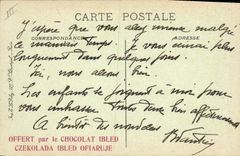 III
CARTE POSTALE
J'espère que vous allez mieux malgré
CORRESPONDANCE
ce mauvais temps. Je vous écrirai plus
longuement dans quelques jours.
Ici, nous allons bien
Les enfants se joignent à moi pour
vous embrasser toutes deux bien affectueusement
A bientôt des nouvelles
OFFERT par le CHOCOLAT IBLED
CZEKOLADA IBLED OFIARUJE